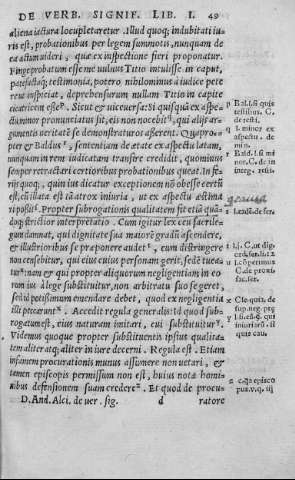 DE VERB. SIGNIF. LIB. I. 49
aliena iactura locupletaretur. Illud quoq; indubitati iu-
ris est, probationibus per legem summotis, nunquam de
ea actum uideri, quæ ex inspectione fieri proponatur.
Finge probatum esse me uulnus Titio intulisse in caput,
patefactáq; testimonia, potero nihilominus à iudice pete
re ut inspiciat, deprehensurum nullam Titio in capite
cicatricem esse. Sicut & uice uersa: Si quis quia ex aspe-
ctu minor pronunciatus sit, eis non nocebit, qui alijs ar-
gumentis ueritatē se demonstraturos asserent. Quapro-
pter & Baldus, sententiam de ætate ex aspectu latam,
nunquam in rem iudicatam transire credidit, quominus
semper retractari certioribus probationibus queat. In fe-
rijs quoq; quin ius dicatur exceptionem nō obesse certū
est, cū lata est cōtra ex iniuria, ut ex aspectu æstima
ri possit. Propter subrogationis qualitatem fit etiā quā-
doq; strictior interpretatio. Cum igitur lex ceu sacrile-
gum damnat, qui dignitate sua maiorē gradū ascendere,
& illustrioribus se præponere audet, eum distringere
non censebitur, qui eius cuius personam gerit, sede tuea-
tur: nam & qui propter aliquorum negligentiam in eo-
rum iūs à lege substituitur, non arbitratu suo se geret,
sed id potissimum emendare debet, quod ex negligentia
illi peccarunt. Accedit regula generalis: Id quod sub-
rogatum est, eius naturam imitari, cui substituitur.
Videmus quoque propter substituentis ipsius qualita-
tem aliter atq; aliter in iure decerni. Regula est. Etiam
infamem procurationis munus assumere non uetari, &
tamen episcopis permissum non est, huius nota homi-
nibus defensionem suam credere. Et quod de procu-
D. And. Alci. de uer. sig. d ratore
h Bal. si quis
testium. C.
de testi.
i l. minor ex
aspectu. de
min.
k Bald. l. si mi
nor. C. de in
integ. resti.
l l. solā. de fer.
C. ut dig.
ord. ser. li. 12
C. de proxi.
sac. scr.
o Cle. quia. de
sup. neg. pre
p l. si eū. §. qui
iniuriarū. si
quis cau.
q c. q̄a episco
pus. v. q. iij